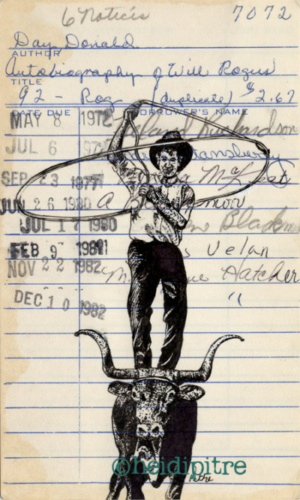 6 Notices 7072
Day Donald
AUTHOR
Autobiography of Will Rogers
TITLE
92 - Rog (duplicate) $2.67
DATE DUE BORROWER'S NAME
MAY 8 1972 Richardson
JUL 6
SEP 23 1977
JUN 26 1980 A
JUL 17 1980 Black
FEB 9 1981 Velan
NOV 22 1982 Hatcher
DEC 10 1982 "
©heidipitre